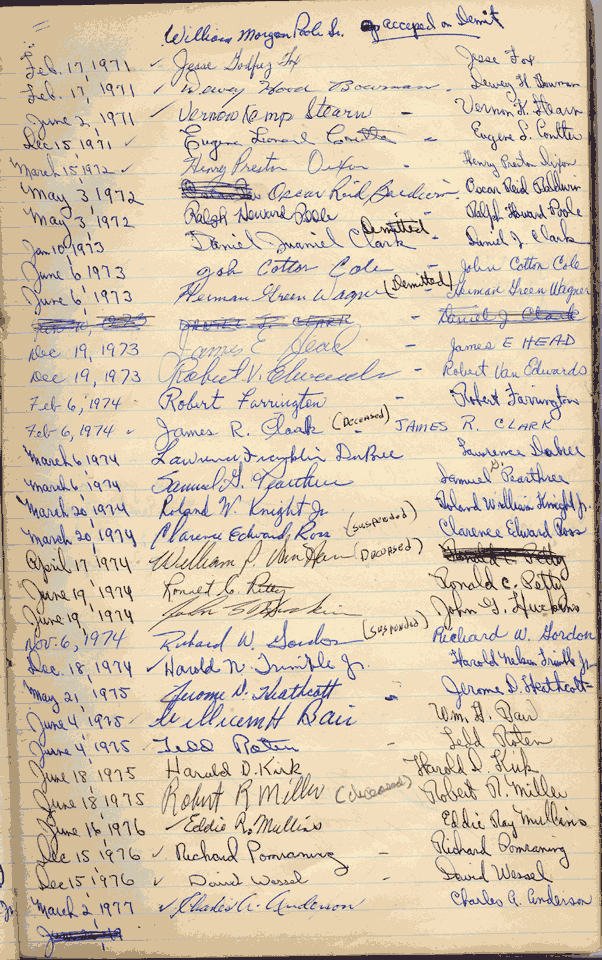 William Morgan Poole Sr. accepted on Demit
Feb. 17, 1971 ✓ Jesse Godfrey Fox Jesse Fox
Feb. 17, 1971 ✓ Dewey Hood Bowman - Dewey H. Bowman
June 2, 1971 ✓ Vernon Kemp Stearn - Vernon K. Stearn
Dec 15 1971 ✓ Eugene Coulter - Eugene S. Coulter
March 15, 1972 ✓ Henry Preston Dixon - Henry Preston Dixon
May 3, 1972 Oscar Reid Baldwin. Oscar Reid Baldwin
May 3, 1972 Ralph Howard Poole - Ralph Howard Poole
Jan 10, 1973 Daniel Clark Demitted - Daniel J. Clark
June 6, 1973 John Cotton Cole - John Cotton Cole
June 6, 1973 Herman Green Wagner (Demitted) - Herman Green Wagner
Daniel J Clark
Dec 19, 1973 James E Head - James E HEAD
Dec 19, 1973 Robert V. Edwards - Robert Van Edwards
Feb 6, 1974 Robert Farrington - Robert Farrington
Feb 6, 1974 James R. Clark (Deceased) - JAMES R. CLARK
March 6 1974 Lawrence Franklin DuBree Lawrence DuBree
March 6, 1974 Samuel G. Pearthree Samuel G. Pearthree
March 20, 1974 Roland W. Knight Jr Roland William Knight Jr.
March 20, 1974 Clarence Edward Ross (suspended) Clarence Edward Ross
April 17, 1974 William P. (Deceased)
June 19, 1974 Ronald C. Petty Ronald C. Petty
June 19, 1974 John G.
Nov. 6, 1974 Richard W. Gordon (suspended) Richard W. Gordon
Dec. 18, 1974 ✓ Harold N. Trimble Jr. Harold Nelson Trimble Jr
May 21, 1975 Jerome D. Heathcott - Jerome D. Heathcott
June 4, 1975 ✓ William H Bair Wm. H. Bair
June 4, 1975 ✓ Tedd Roten - Tedd Roten
June 18, 1975 Harold D. Kirk Harold D. Kirk
June 18 1975 Robert R Miller (deceased) Robert R. Miller
June 16 1976 ✓ Eddie R. Mullins Eddie Ray Mullins
Dec 15, 1976 ✓ Richard Pomraning - Richard Pomraning
Dec 15, 1976 ✓ David Wessel - David Wessel
March 2, 1977 ✓ Charles A. Anderson Charles A. Anderson